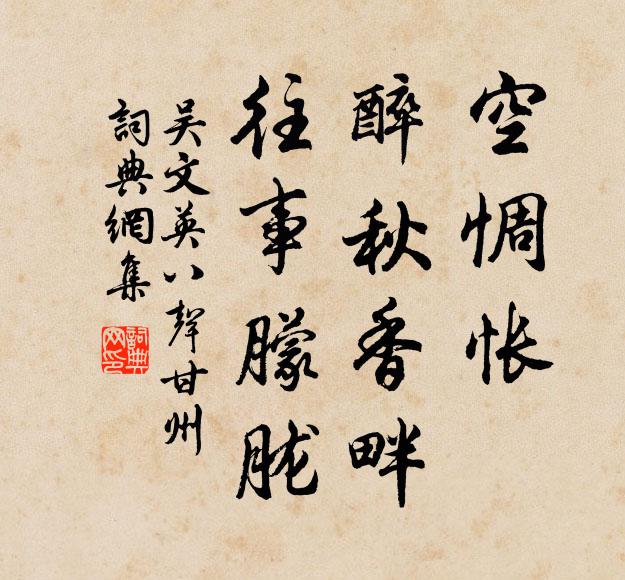 空惆怅
醉秋香畔
往事朦胧
吴文英八聲甘州
詞典網集
詞典网印